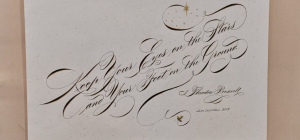 Keep Your Eyes on the Stars
and Your Feet on the Ground.
Theodore Roosevelt